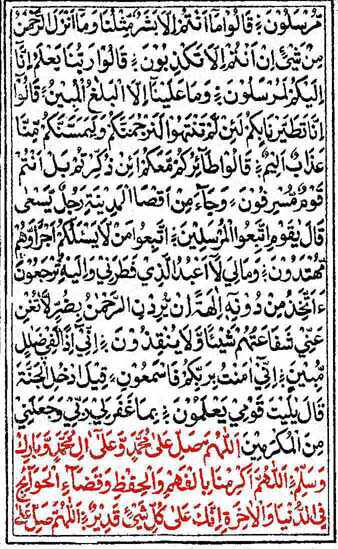 مُّرْسَلُوْنَ ۝ قَالُوْا مَآ اَنْتُمْ اِلَّا بَشَرٌ مِّثْلُنَا وَمَآ اَنْزَلَ الرَّحْمٰنُ
مِنْ شَيْءٍ اِنْ اَنْتُمْ اِلَّا تَكْذِبُوْنَ ۝ قَالُوْا رَبُّنَا يَعْلَمُ اِنَّآ
اِلَيْكُمْ لَمُرْسَلُوْنَ ۝ وَمَا عَلَيْنَآ اِلَّا الْبَلٰغُ الْمُبِيْنُ ۝ قَالُوْٓا
اِنَّا تَطَيَّرْنَا بِكُمْ لَئِنْ لَّمْ تَنْتَهُوْا لَنَرْجُمَنَّكُمْ وَلَيَمَسَّنَّكُمْ مِّنَّا
عَذَابٌ اَلِيْمٌ ۝ قَالُوْا طَآئِرُكُمْ مَّعَكُمْ اَئِنْ ذُكِّرْتُمْ بَلْ اَنْتُمْ
قَوْمٌ مُّسْرِفُوْنَ ۝ وَجَآءَ مِنْ اَقْصَا الْمَدِيْنَةِ رَجُلٌ يَّسْعٰى
قَالَ يٰقَوْمِ اتَّبِعُوا الْمُرْسَلِيْنَ ۝ اتَّبِعُوْا مَنْ لَّا يَسْئَلُكُمْ اَجْرًا وَّهُمْ
مُّهْتَدُوْنَ ۝ وَمَا لِيَ لَآ اَعْبُدُ الَّذِيْ فَطَرَنِيْ وَاِلَيْهِ تُرْجَعُوْنَ ۝
ءَاَتَّخِذُ مِنْ دُوْنِهٖٓ اٰلِهَةً اِنْ يُّرِدْنِ الرَّحْمٰنُ بِضُرٍّ لَّا تُغْنِ
عَنِّيْ شَفَاعَتُهُمْ شَيْئًا وَّلَا يُنْقِذُوْنِ ۝ اِنِّيْٓ اِذًا لَّفِيْ ضَلٰلٍ
مُّبِيْنٍ ۝ اِنِّيْٓ اٰمَنْتُ بِرَبِّكُمْ فَاسْمَعُوْنِ ۝ قِيْلَ ادْخُلِ الْجَنَّةَ
قَالَ يٰلَيْتَ قَوْمِيْ يَعْلَمُوْنَ ۝ بِمَا غَفَرَ لِيْ رَبِّيْ وَجَعَلَنِيْ
مِنَ الْمُكْرَمِيْنَ اَللّٰهُمَّ صَلِّ عَلٰى مُحَمَّدٍ وَّعَلٰٓى اٰلِ مُحَمَّدٍ وَّبَارِكْ
وَسَلِّمْ ۝ اَللّٰهُمَّ اَكْرِمْنَا بِالْفَهْمِ وَالْحِفْظِ وَقَضَآءِ الْحَوَآئِجِ
فِي الدُّنْيَا وَالْاٰخِرَةِ اِنَّكَ عَلٰى كُلِّ شَيْءٍ قَدِيْرٌ ۝ اَللّٰهُمَّ صَلِّ عَلٰى